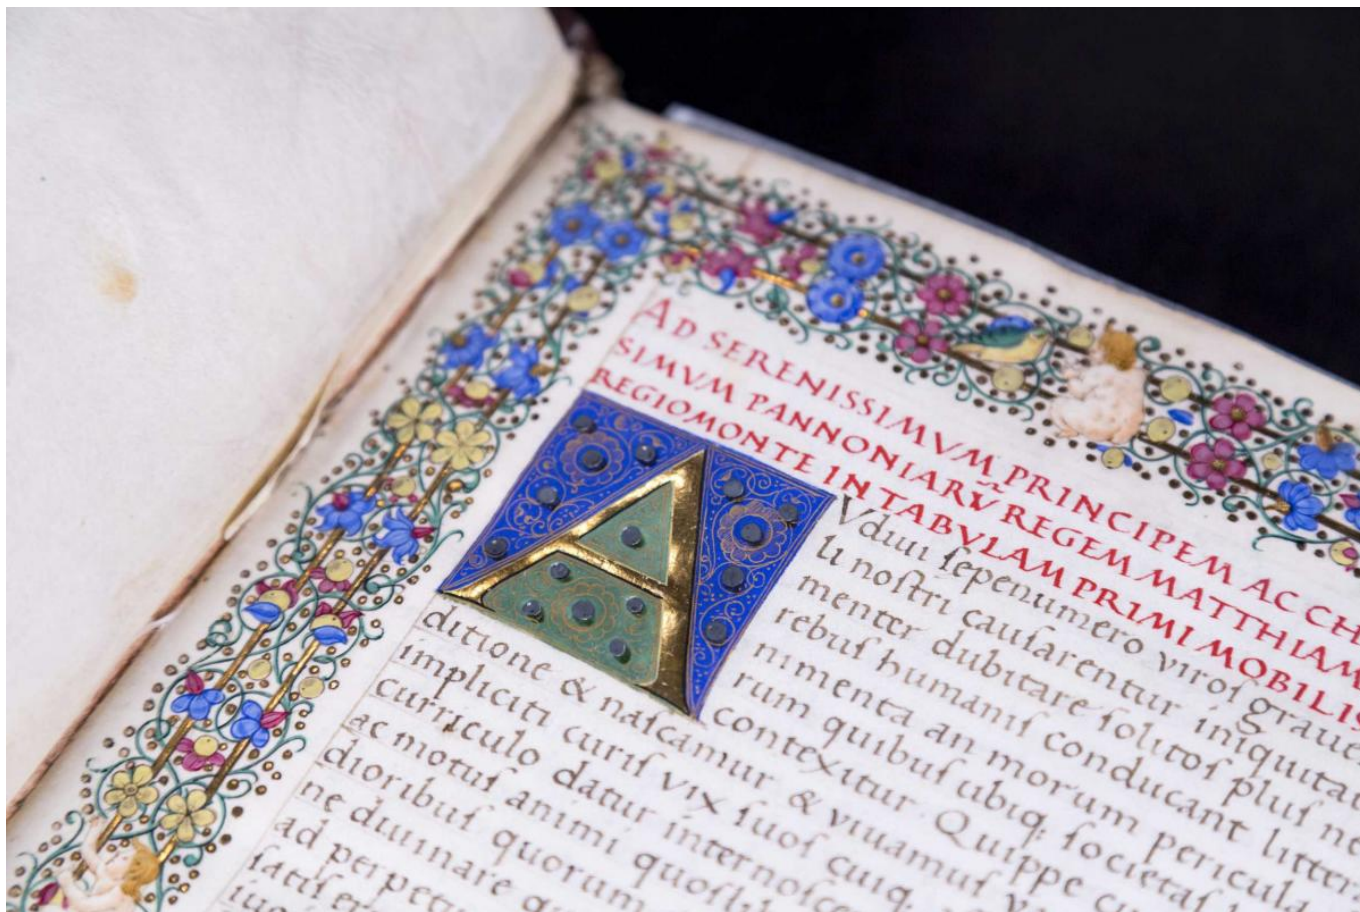 AD SERENISSIMVM PRINCIPEM AC CH
SIMVM PANNONIARṼ REGEM MATTHIAM
REGIOMONTE IN TABVLAM PRIMI MOBILIS
A Vdiui ſepenumero viroſ graue
li noſtri cauſarentur iniquita
menter dubitare ſolitoſ pluſ ne
rebuſ humaniſ conducant litter
nimenta an morum pericula
rum quibuſ ubiq. ſocietaſ
contexitur Quippe cu
ditione & naſcamur & viuamuſ
impliciti curiſ vix ſuoſ cuiq.
curriculo datur internoſce
ac motuſ animi quoſ
dioribuſ quorum
ne diuinare
ad perpetu
ſatiſ